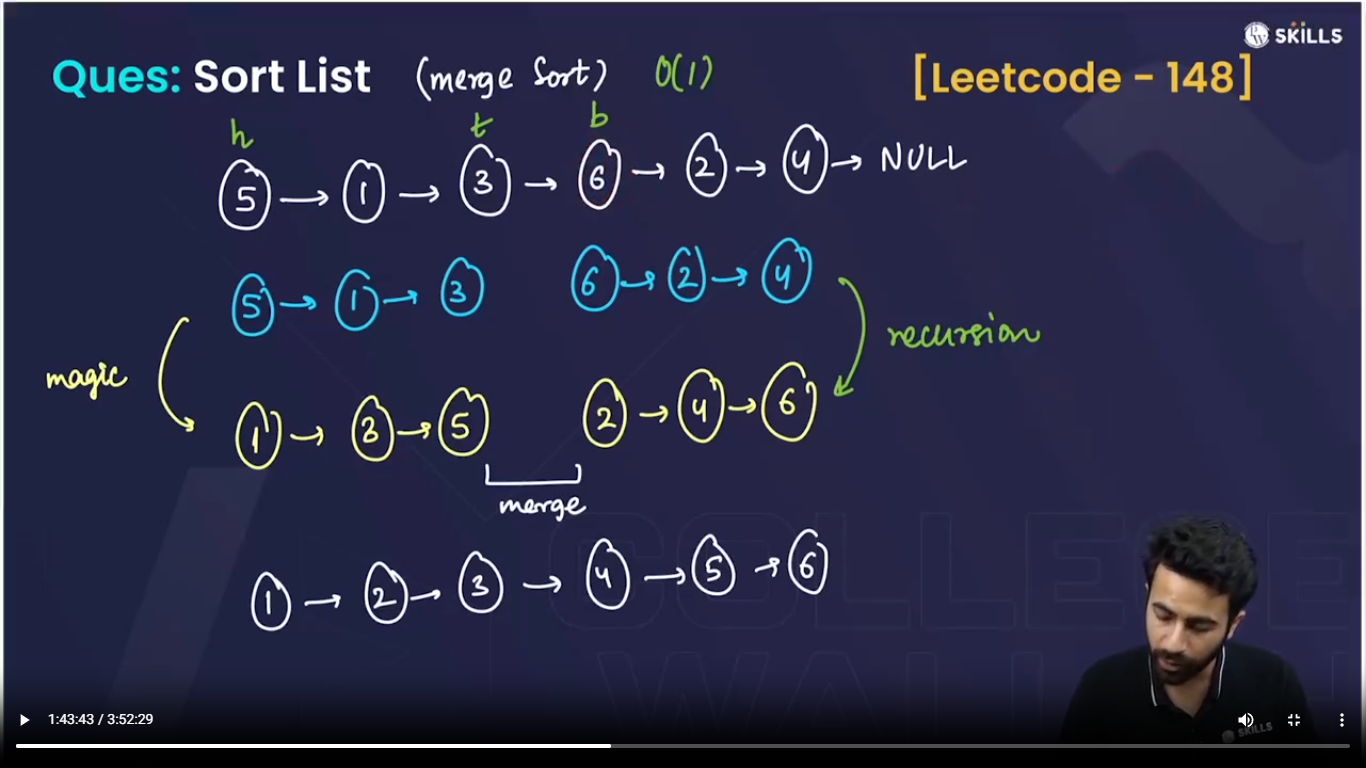 SKILLS
Ques: Sort List (merge sort) O(1) [Leetcode - 148]
h t b
5 → 1 → 3 → 6 → 2 → 4 → NULL
5 → 1 → 3 6 → 2 → 4
recursion
magic
1 → 3 → 5 2 → 4 → 6
merge
1 → 2 → 3 → 4 → 5 → 6
COLLEGE
WALLAH
SKILLS
1:43:43 / 3:52:29